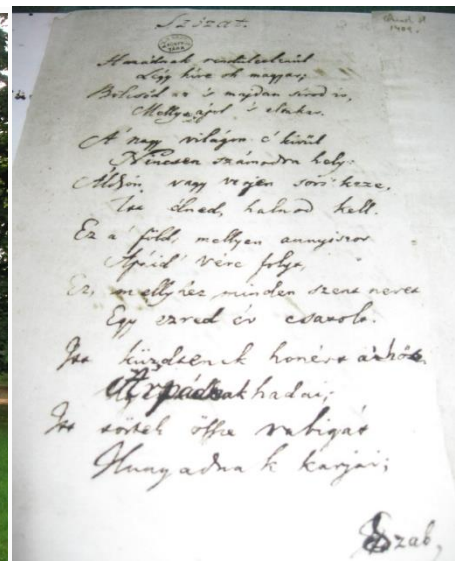 Szózat.
Hazádnak rendületlenűl
Légy híve oh magyar;
Bölcsőd az 's majdan sírod is,
Melly ápol 's eltakar.
A' nagy világon e' kivűl
Nincsen számodra hely;
Áldjon, vagy verjen sors keze,
Itt élned, halnod kell.
Ez a' föld, mellyen annyiszor
Apáid' vére folyt,
Ez, mellyhez minden szent nevet
Egy ezred év csatolt.
Itt küzdtenek honért a' hős
Árpádnak hadai;
Itt törtek össze rabigát
Hunyadnak karjai;
Szab,